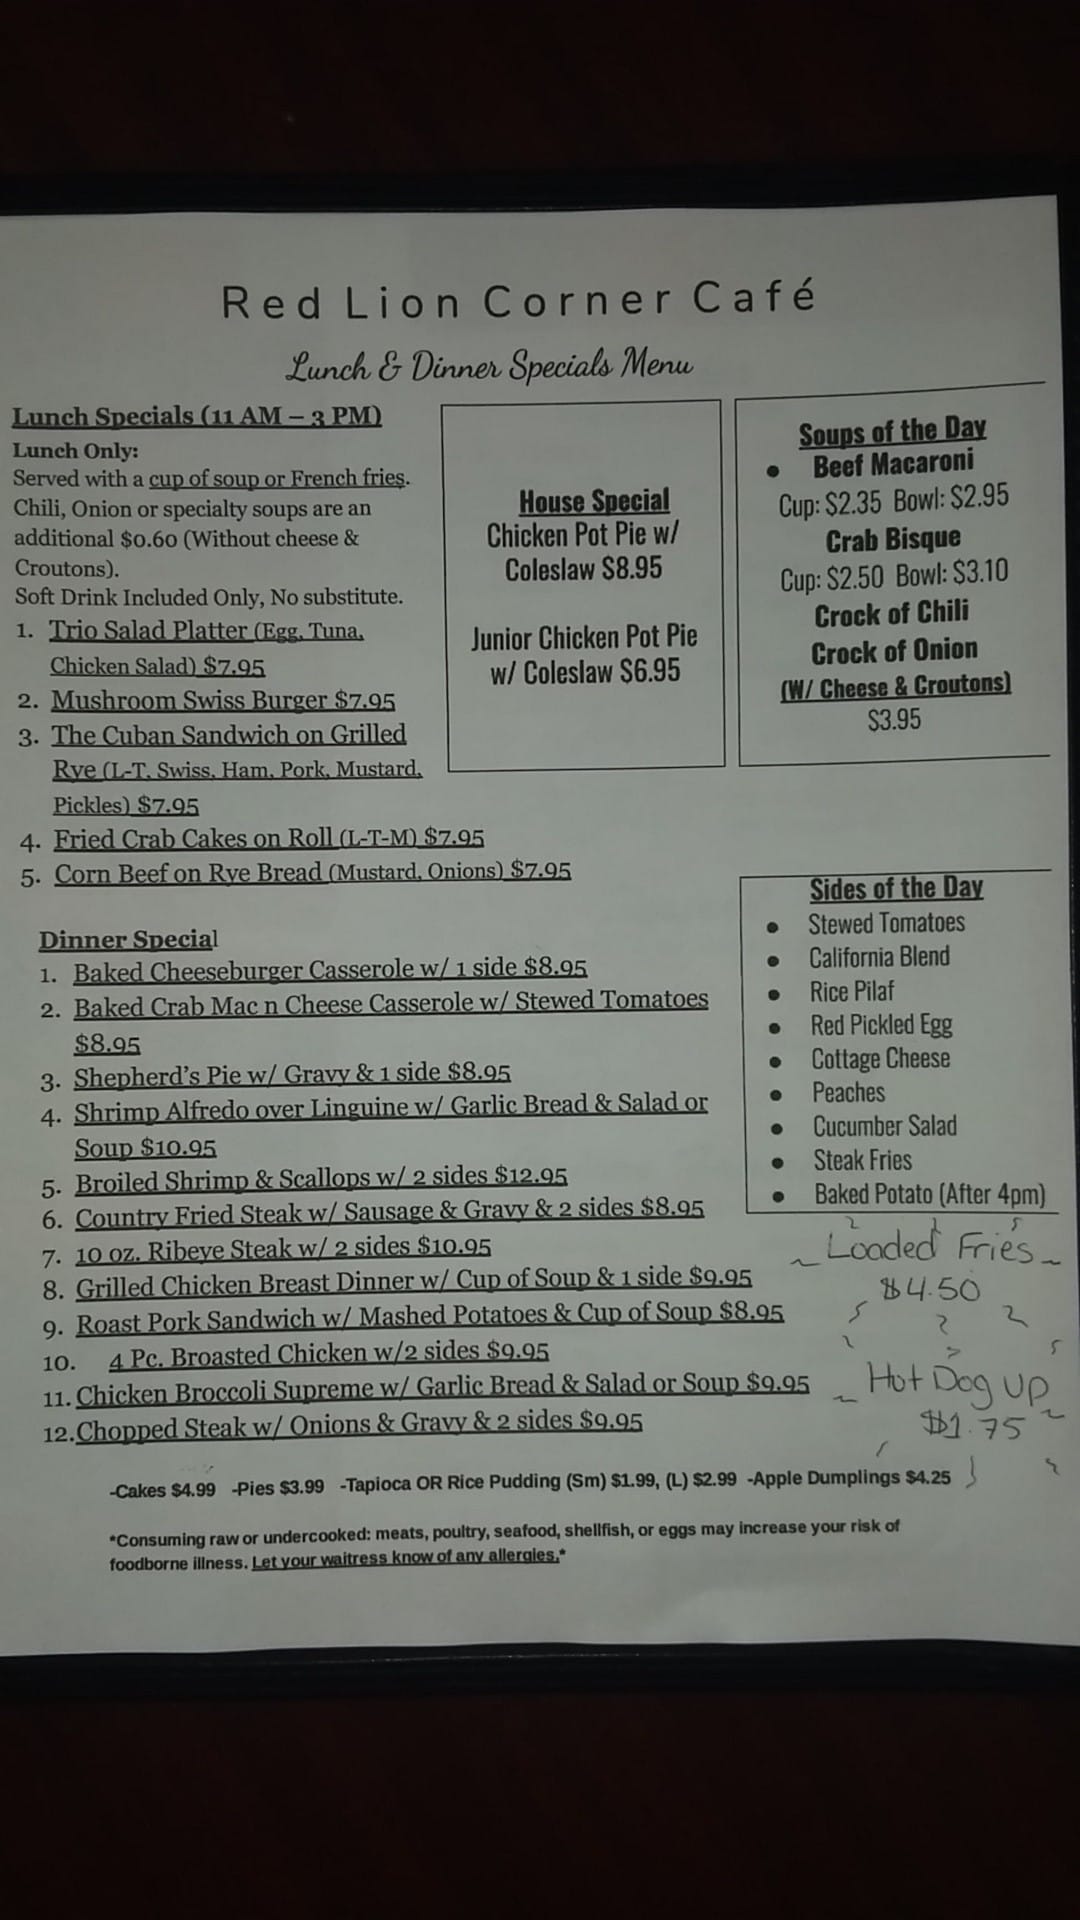 Red Lion Corner Café
Lunch & Dinner Specials Menu
Lunch Specials (11 AM – 3 PM)
Lunch Only:
Served with a cup of soup or French fries.
Chili, Onion or specialty soups are an
additional $0.60 (Without cheese &
Croutons).
Soft Drink Included Only, No substitute.
1. Trio Salad Platter (Egg, Tuna,
Chicken Salad) $7.95
2. Mushroom Swiss Burger $7.95
3. The Cuban Sandwich on Grilled
Rye (L-T, Swiss, Ham, Pork, Mustard,
Pickles) $7.95
4. Fried Crab Cakes on Roll (L-T-M) $7.95
5. Corn Beef on Rye Bread (Mustard, Onions) $7.95
House Special
Chicken Pot Pie w/
Coleslaw $8.95
Junior Chicken Pot Pie
w/ Coleslaw $6.95
Soups of the Day
• Beef Macaroni
Cup: $2.35 Bowl: $2.95
Crab Bisque
Cup: $2.50 Bowl: $3.10
Crock of Chili
Crock of Onion
(W/ Cheese & Croutons)
$3.95
Dinner Special
1. Baked Cheeseburger Casserole w/ 1 side $8.95
2. Baked Crab Mac n Cheese Casserole w/ Stewed Tomatoes
$8.95
3. Shepherd's Pie w/ Gravy & 1 side $8.95
4. Shrimp Alfredo over Linguine w/ Garlic Bread & Salad or
Soup $10.95
5. Broiled Shrimp & Scallops w/ 2 sides $12.95
6. Country Fried Steak w/ Sausage & Gravy & 2 sides $8.95
7. 10 oz. Ribeye Steak w/ 2 sides $10.95
8. Grilled Chicken Breast Dinner w/ Cup of Soup & 1 side $9.95
9. Roast Pork Sandwich w/ Mashed Potatoes & Cup of Soup $8.95
10. 4 Pc. Broasted Chicken w/2 sides $9.95
11. Chicken Broccoli Supreme w/ Garlic Bread & Salad or Soup $9.95
12. Chopped Steak w/ Onions & Gravy & 2 sides $9.95
Sides of the Day
• Stewed Tomatoes
• California Blend
• Rice Pilaf
• Red Pickled Egg
• Cottage Cheese
• Peaches
• Cucumber Salad
• Steak Fries
• Baked Potato (After 4pm)
~ Loaded Fries ~
$4.50
~ Hot Dog Up ~
$1.75
-Cakes $4.99 -Pies $3.99 -Tapioca OR Rice Pudding (Sm) $1.99, (L) $2.99 -Apple Dumplings $4.25
*Consuming raw or undercooked: meats, poultry, seafood, shellfish, or eggs may increase your risk of
foodborne illness. Let your waitress know of any allergies.*